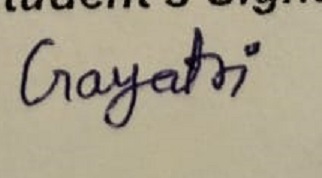 Student's Sign
Gayatri